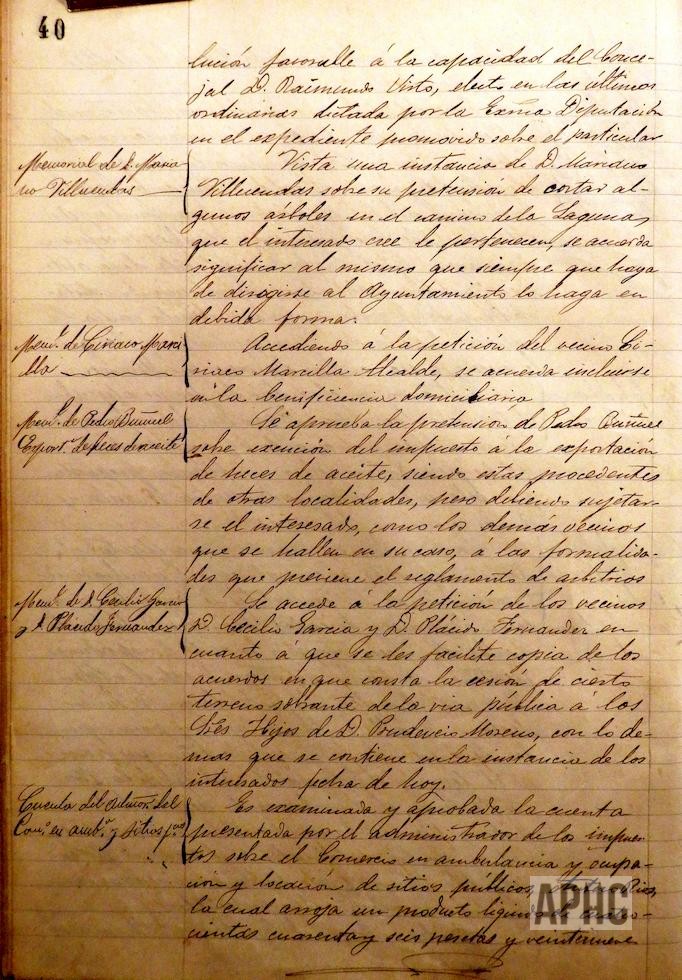 40
lución favorable á la capacidad del Conce-
jal D. Raimundo Visto, electo en las últimas
ordinarias dictada por la Exma Diputación
en el expediente promovido sobre el particular
Memorial de D. Maria
no Villuendas
Vista una instancia de D. Mariano
Villuendas sobre su pretensión de cortar al-
gunos árboles en el camino de la Laguna,
que el interesado cree le pertenecen, se acuerda
significar al mismo que siempre que haya
de dirigirse al Ayuntamiento lo haga en
debida forma.
Meml. de Ciriaco Marci
lla
Accediendo á la petición del vecino Ci-
riaco Marcilla Alcalde, se acuerda incluirse
en la beneficencia domiciliaria
Meml. de Pedro Buñuel
Export. de heces de aceite
Se aprueba la pretensión de Pedro Buñuel
sobre exención del impuesto á la exportación
de heces de aceite, siendo estas procedentes
de otras localidades, pero debiendo sujetar-
se el interesado, como los demás vecinos
que se hallen en su caso, á las formalida-
des que previene el reglamento de arbitrios
Meml. de D. Cecilio Garcia
y D. Plácido Fernandez
Se accede á la petición de los vecinos
D. Cecilio Garcia y D. Plácido Fernandez en
cuanto á que se les facilite copia de los
acuerdos en que consta la cesión de cierto
terreno sobrante de la via pública á los
Sres Hijos de D. Prudencio Moreno, con lo de-
mas que se contiene en la instancia de los
interesados fecha de hoy.
Cuenta del Admor. del
Com.o en amb.a y sitios p.cos
Es examinada y aprobada la cuenta
presentada por el administrador de los impues-
tos sobre el Comercio en ambulancia y ocupa-
ción y locación de sitios públicos,
la cual arroja un producto líquido de
cuentas cuarenta y seis pesetas y veintinueve
APHC